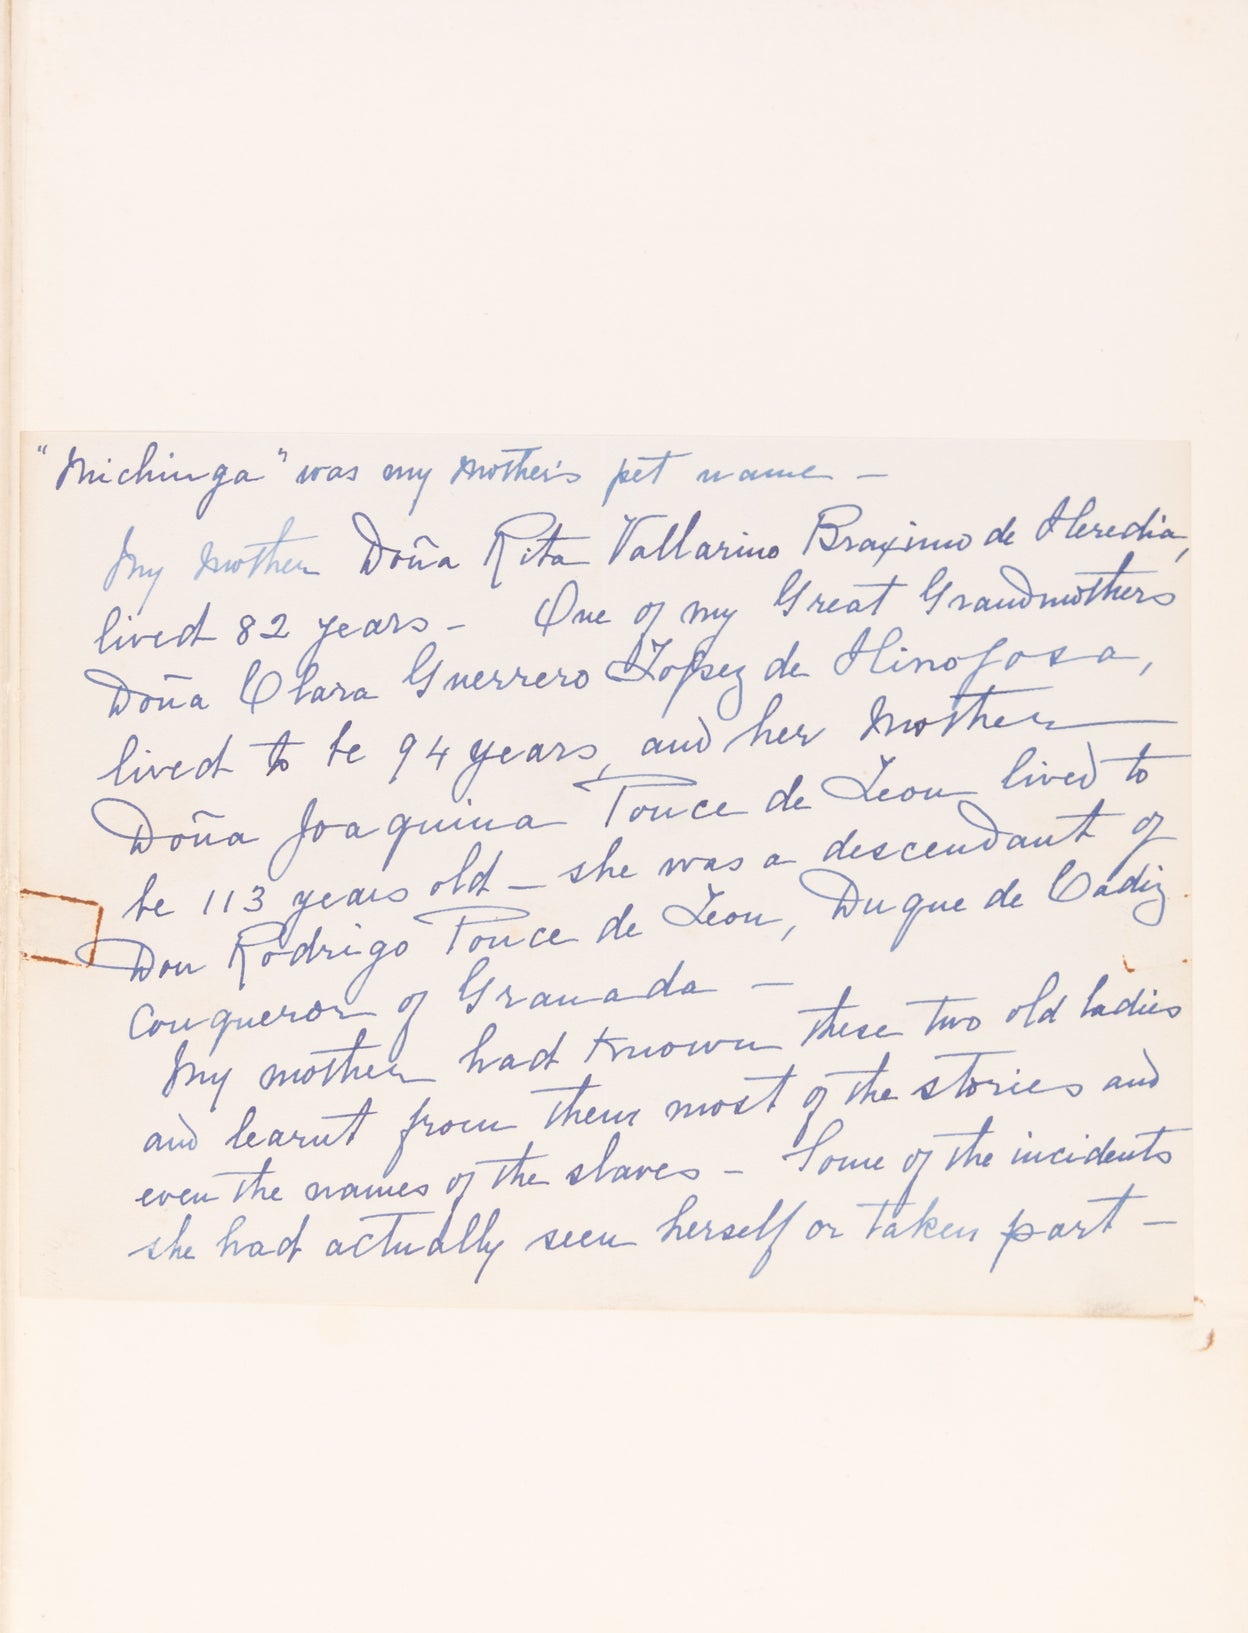 "Michinga" was my mother's pet name –
My Mother Doña Rita Vallarino Braximo de Heredia,
lived 82 years – One of my Great Grandmothers
Doña Clara Guerrero Lopez de Hinojosa,
lived to be 94 years, and her Mother
Doña Joaquina Ponce de Leon lived to
be 113 years old – she was a descendant of
Don Rodrigo Ponce de Leon, Duque de Cadiz
conqueror of Granada –
My mother had known these two old ladies
and learnt from them most of the stories and
even the names of the slaves – Some of the incidents
she had actually seen herself or taken part –